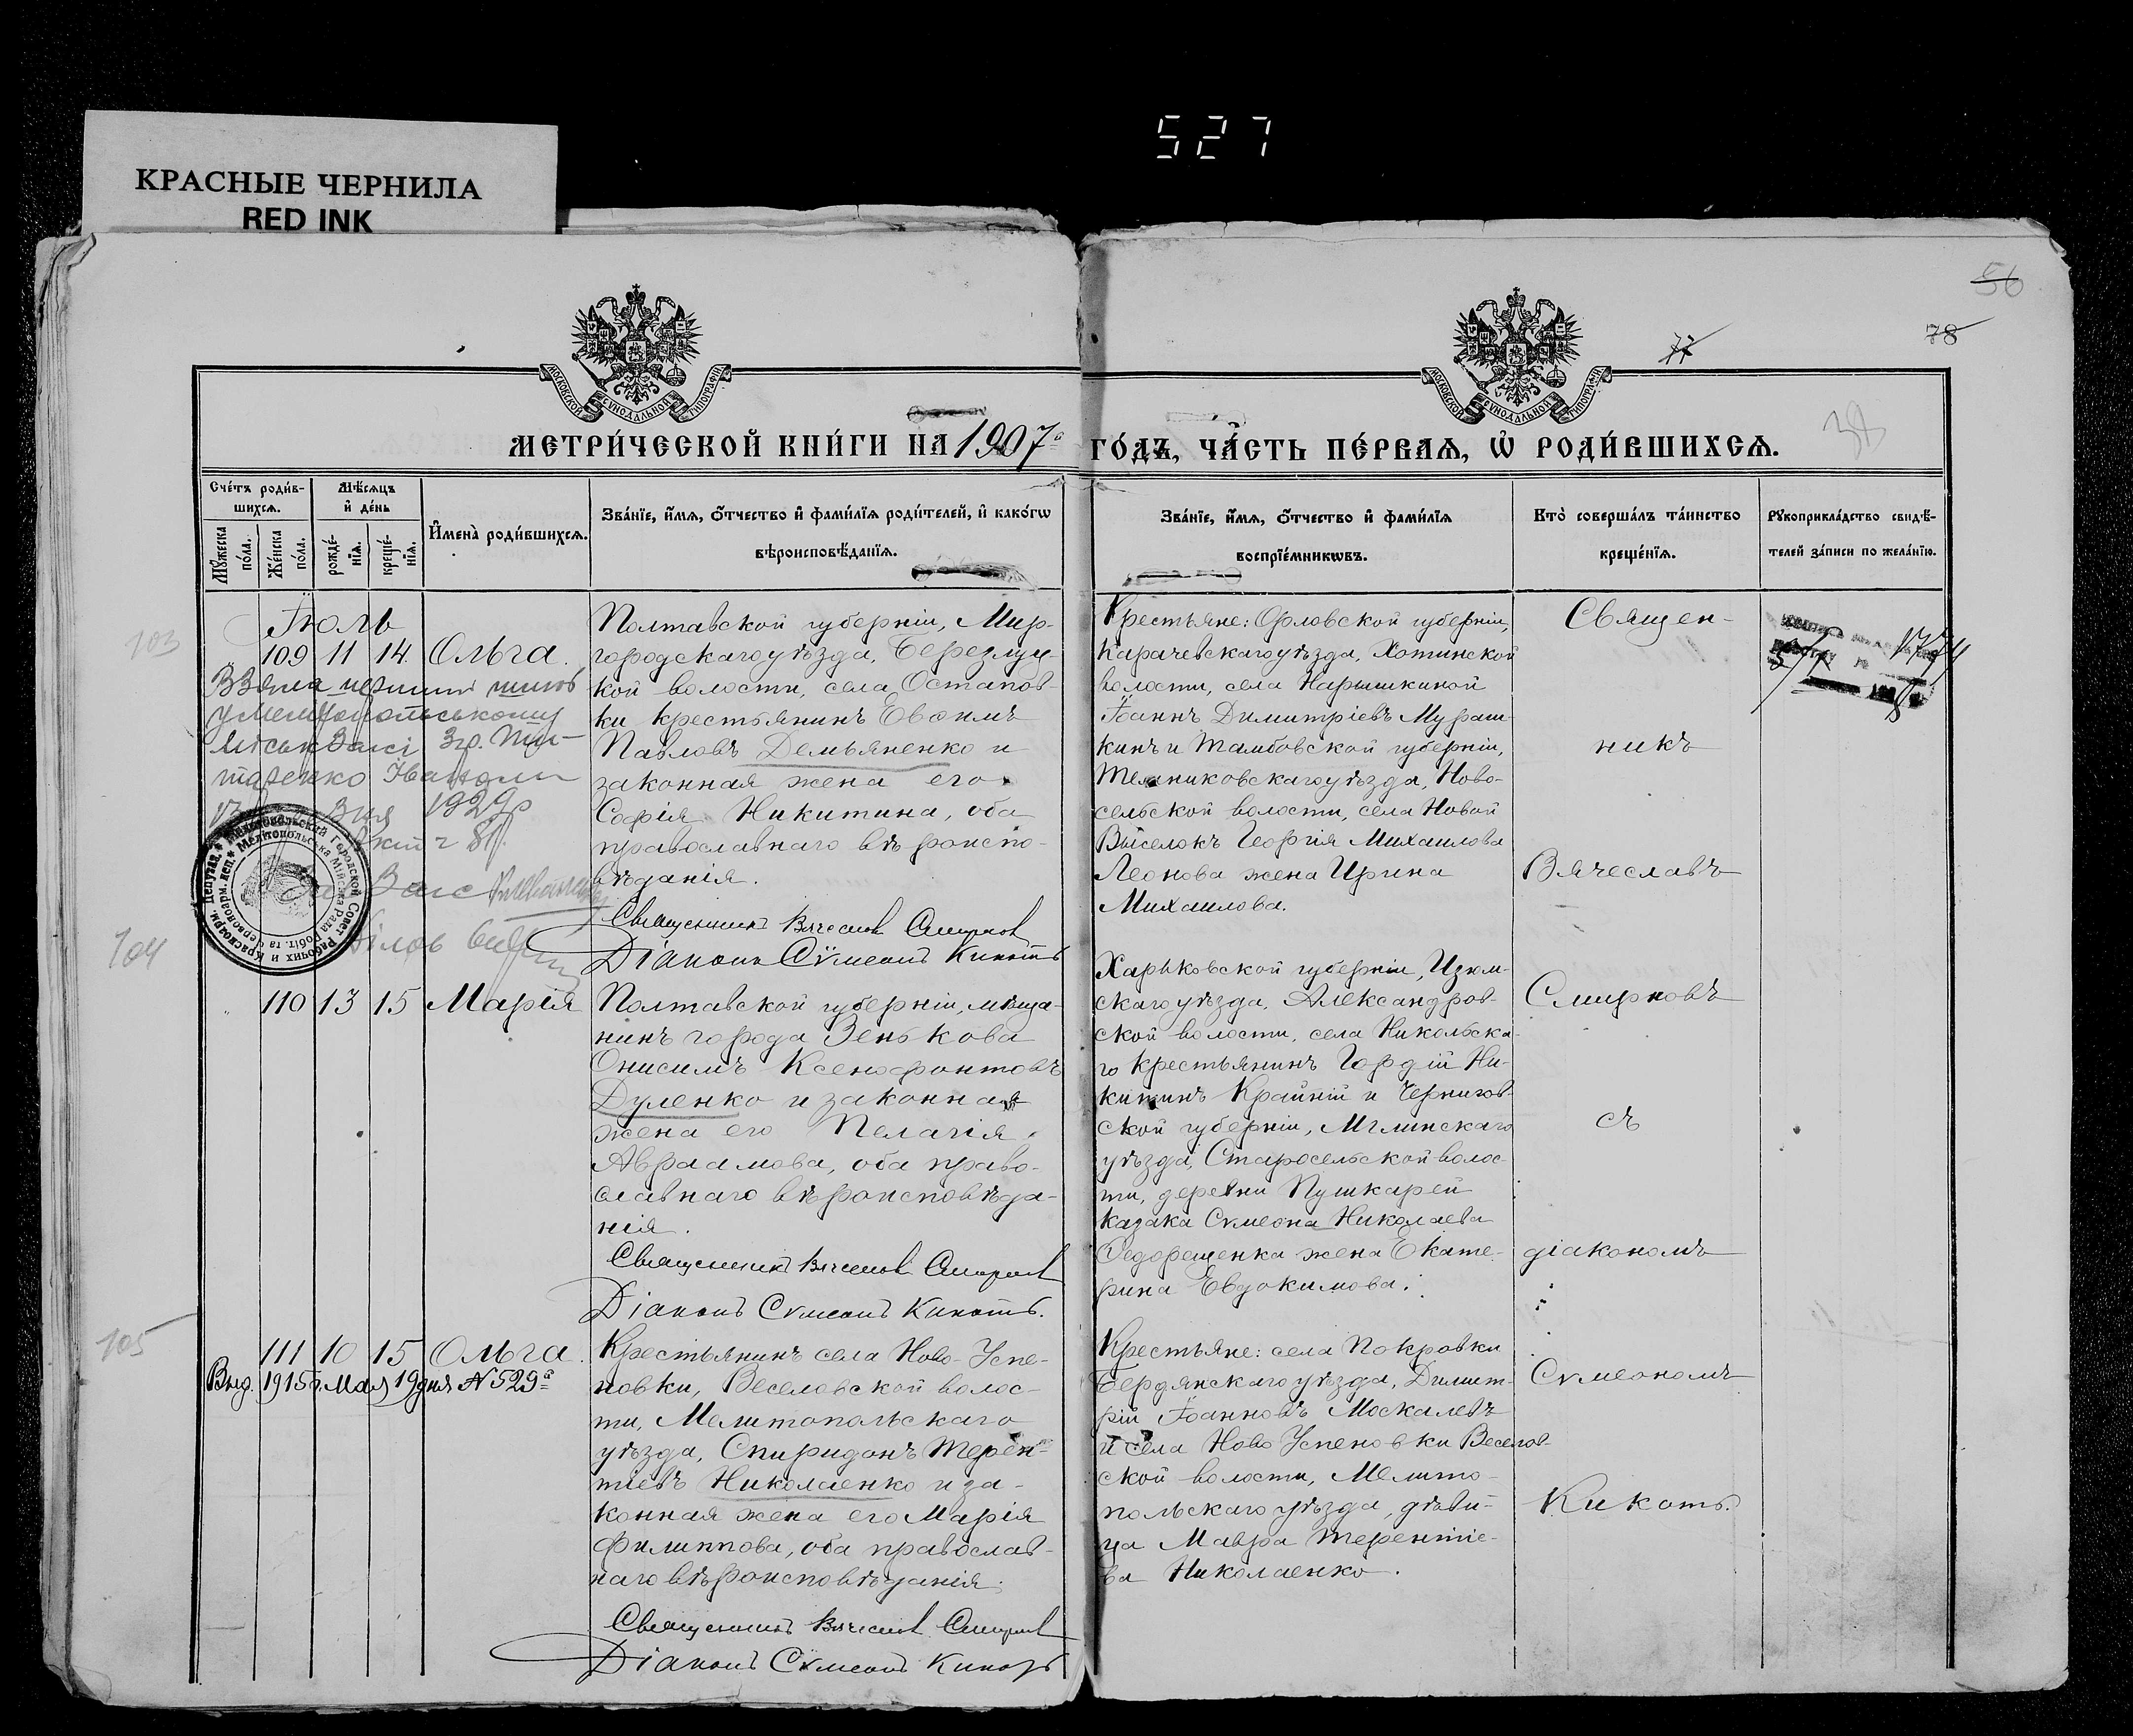 527
КРАСНЫЕ ЧЕРНИЛА
RED INK
56
78
77
38
МОСКОВСКОЙ СѴНОДАЛЬНОЙ ТИПОГРАФІИ
МОСКОВСКОЙ СѴНОДАЛЬНОЙ ТИПОГРАФІИ
МЕТРИ́ЧЕСКОЙ КНИ́ГИ НА 1907 ГО́ДЪ, ЧА́СТЬ ПЕ́РВАЯ, Ѡ҆ РОДИ́ВШИХСЯ.
Сче́тъ роди́в-
шихся.
Мѣ́сяцъ
и҆ де́нь
Му́жеска по́ла.
Же́нска по́ла.
рожде́-
нїя.
креще́-
нїя.
И҆мена̀ роди́вшихся.
Зва́нїе, и҆́мя, ѻ҆́тчество и҆ фами́лїя роди́телей, и҆ како́гѡ
вѣроисповѣ́данїя.
Зва́нїе, и҆́мя, ѻ҆́тчество и҆ фами́лїя
воспрїе́мникѡвъ.
Кто̀ соверша́лъ та́инство
креще́нїя.
Рꙋкоприкла́дство свидѣ́-
телей за́писи по жела́нїю.
Іюль
103
109 11 14 Ольга.
Полтавской губерніи, Мир-
городскаго уѣзда, Березлуц-
кой волости, села Остапов-
ки крестьянинъ Евѳимъ
Павловъ Демьяненко и
законная жена его
Софія Никитина, оба
православнаго вѣроиспо-
вѣданія.
Священникъ Вячеславъ Смирнов
Діаконъ Сѵмеонъ Кикоть
Крестьяне: Орловской губерніи,
Карачевскаго уѣзда, Хотинской
волости, села Нарышкиной
Іоаннъ Димитріевъ Мураш-
кинъ и Тамбовской губерніи,
Темниковскаго уѣзда, Ново-
сельской волости, села Новой
Выселокъ Георгія Михаилова
Леонова жена Ирина
Михаилова.
Священ-
никъ
Вячеславъ
Смирновъ
съ
діакономъ
Сѵмеономъ
Кикоть.
1929
104
110 13 15 Марія
Полтавской губерніи, мѣща-
нинъ города Зенькова
Онисимъ Ксенофонтовъ
Дуленко и законная
жена его Пелагія
Авраамова, оба право-
славнаго вѣроисповѣда-
нія.
Священникъ Вячеславъ Смирнов
Діаконъ Сѵмеонъ Кикоть.
Харьковской губерніи, Изюм-
скаго уѣзда, Александров-
ской волости, села Никольска-
го крестьянинъ Гордій Ни-
китинъ Крайній и Чернигов-
ской губерніи, Мглинскаго
уѣзда, Старосельской волос-
ти, деревни Пушкарей
казака Сѵмеона Николаева
Ѳедорещенка жена Екате-
рина Евдокимова.
105
111 10 15 Ольга.
Выд. 1915 г. Мая 19 дня № 529
Крестьянинъ села Ново-Успе-
новки, Веселовской волос-
ти, Мелитопольскаго
уѣзда, Спиридонъ Терен-
тіевъ Николаенко и за-
конная жена его Марія
Филиппова, оба православ-
наго вѣроисповѣданія.
Священникъ Вячеславъ Смирнов
Діаконъ Сѵмеонъ Кикоть
Крестьяне: села Покровки
Бердянскаго уѣзда, Димит-
рій Іоанновъ Москалевъ
и села Ново Успеновки Веселов-
ской волости, Мелито-
польскаго уѣзда, дѣви-
ца Мавра Терентіе-
ва Николаенко.